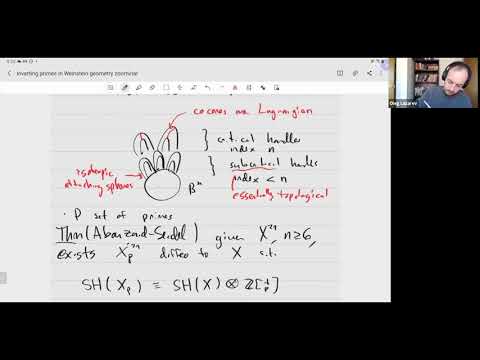 Inverting primes in Weinstein geometry zoominar
cocores are Lagrangian
critical handles
index n
subcritical handles
index < n
essentially topological
isotropic
attaching spheres
B²ⁿ
· P set of primes
Thm (Abouzaid-Seidel) given X²ⁿ, n≥6,
exists X_P²ⁿ diffeo to X s.t.
SH(X_P) ≅ SH(X) ⊗ Z[1/P]
Oleg Lazarev